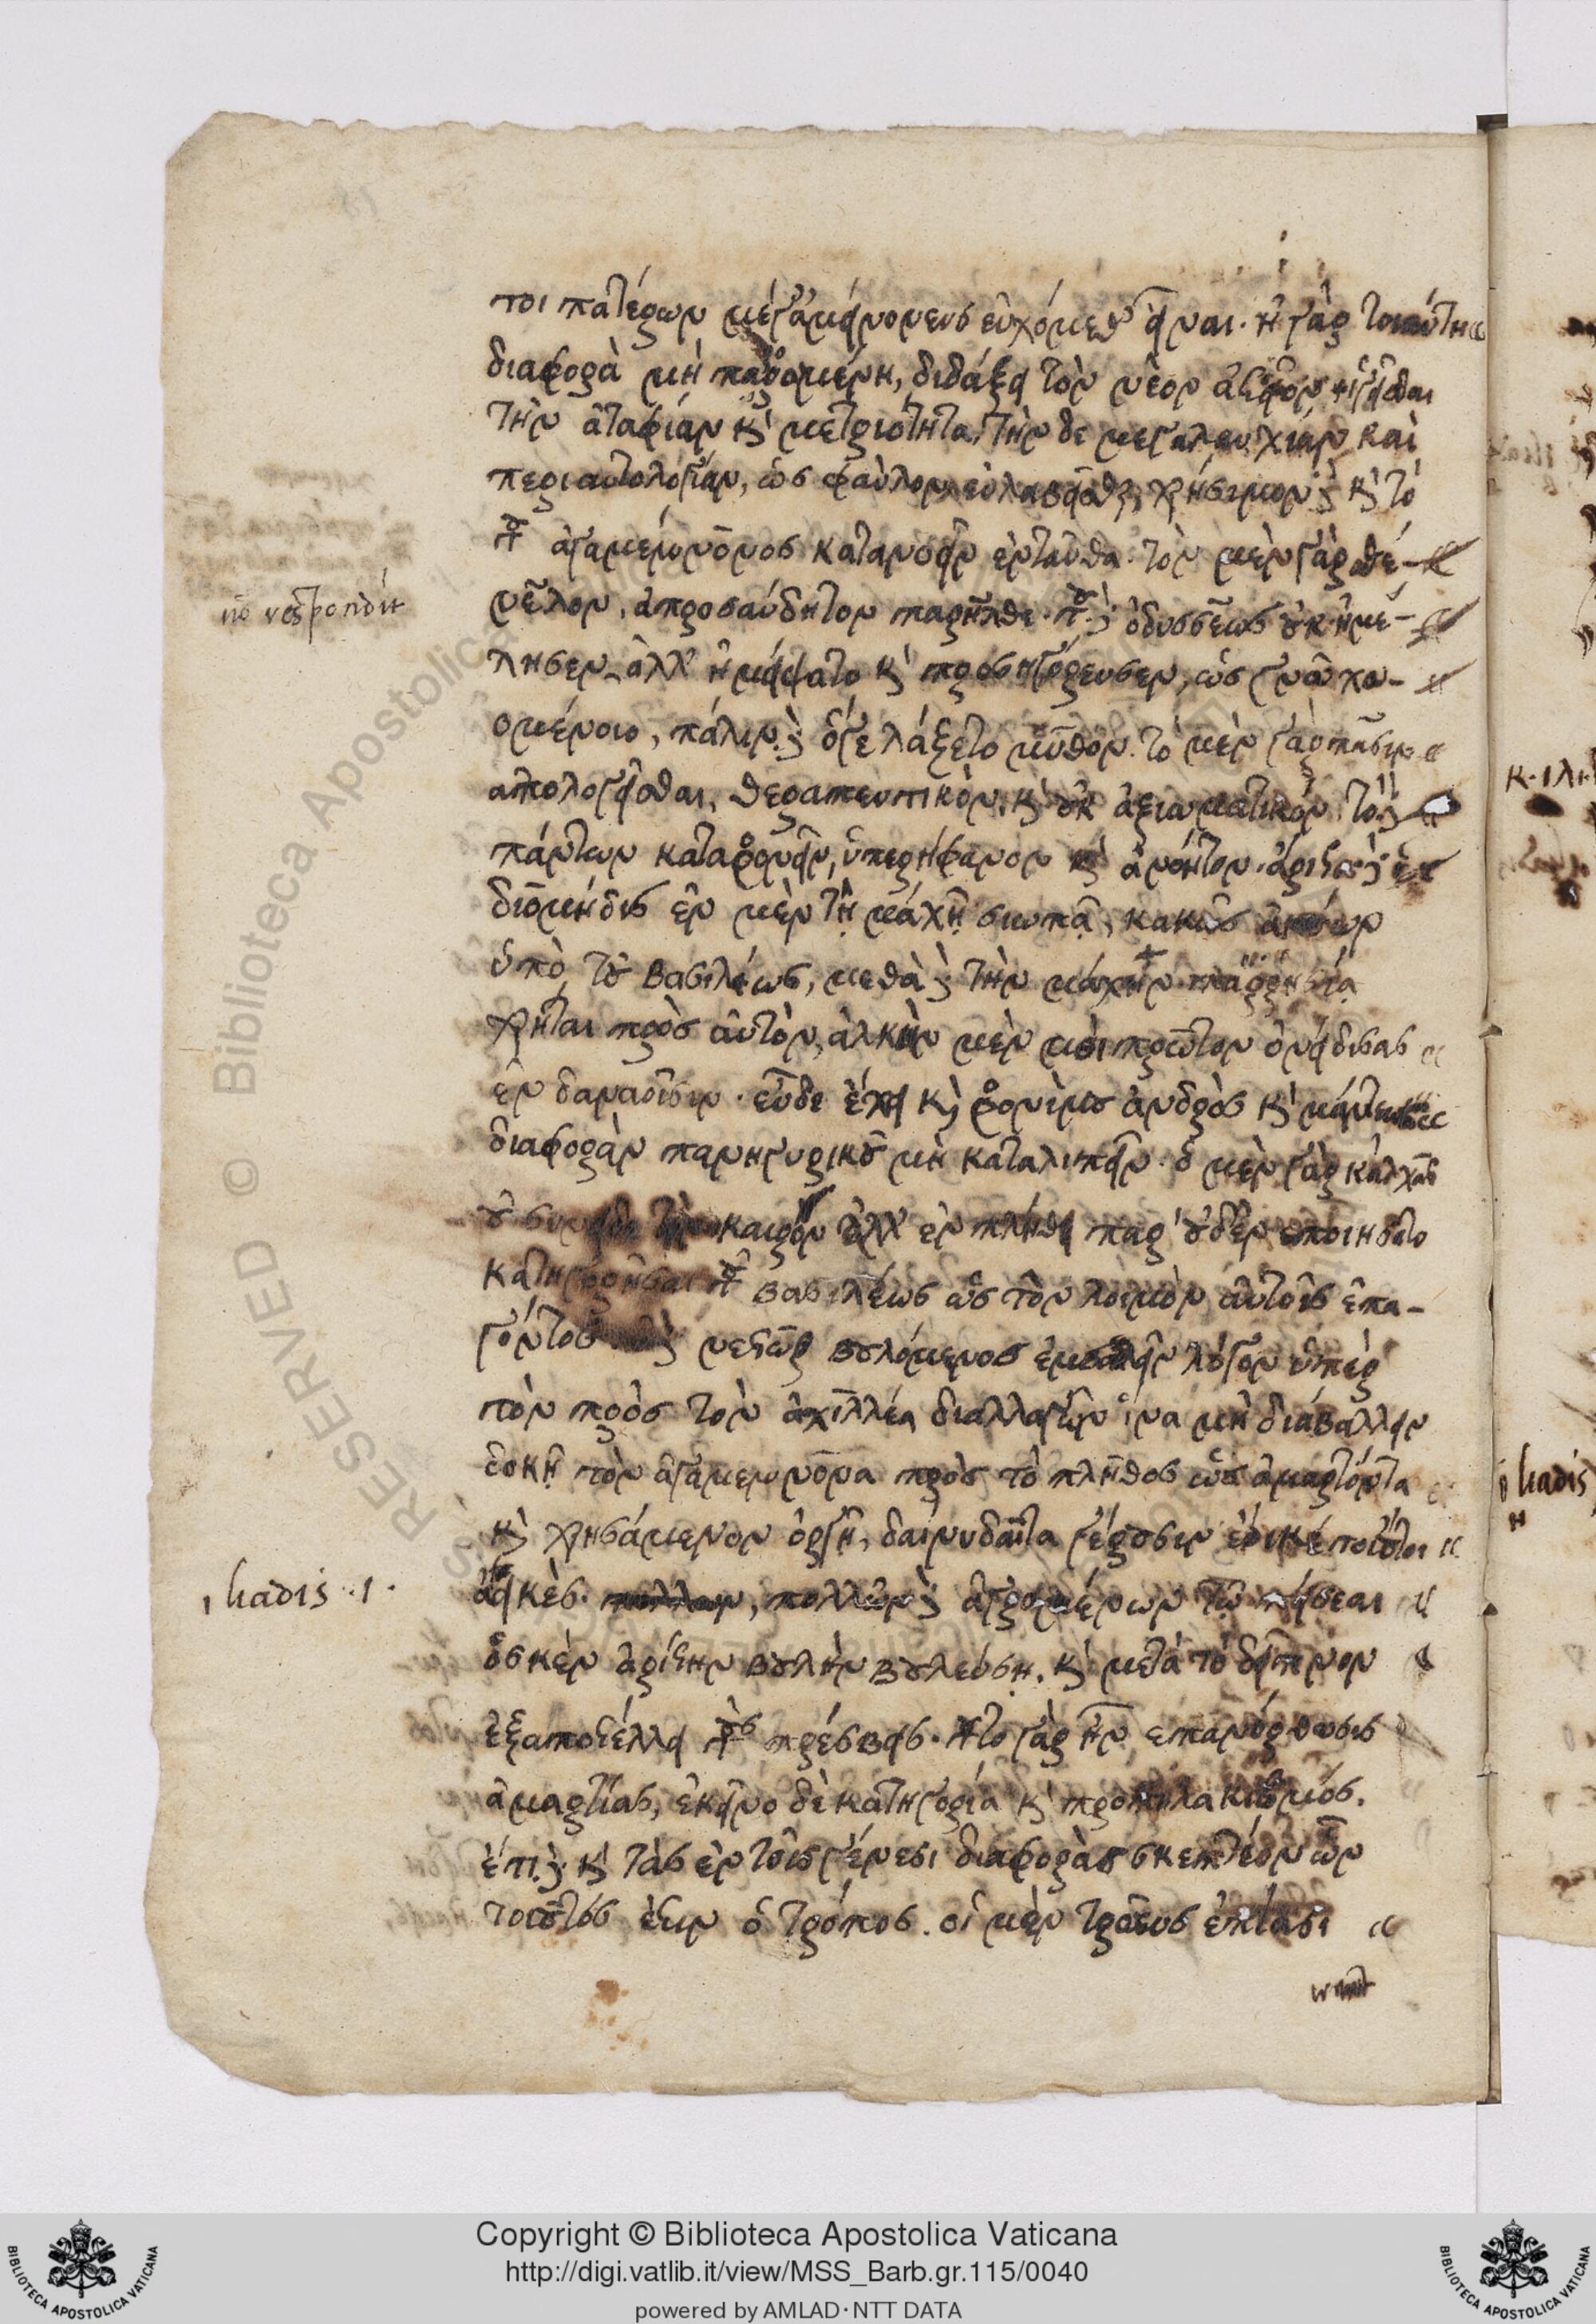 τοι πατέρων μέγ' ἀμείνονες εὐχόμεθ' εἶναι. ἡ γὰρ τοιαύτη
διαφορὰ μὴ παρορωμένη, διδάξει τὸν νέον ἀστεῖον ἡγεῖσθαι
τὴν ἀταφίαν κ μετριότητα, τὴν δε μεγαλαυχίαν καὶ
περιαυτολογίαν, ὡς φαῦλον εὐλαβεῖσθαι, χρήσιμον δὲ κ τὸ
τοῦ ἀγαμέμνονος κατανοεῖν ἐνταῦθα. τὸν μὲν γὰρ σθέ-
νελον, ἀπροσαύδητον παρῆλθε. τοῦ δὲ ὀδυσσέως οὐκ ἠμέ-
λησεν, ἀλλ' ἠμείψατο κ προσηγόρευσεν, ὡς γνῶ χω-
ομένοιο, πάλιν δ' ὅγε λάζετο μῦθον. τὸ μὲν γὰρ πᾶσιν
απολογεῖσθαι, θεραπευτικὸν, κ οὐκ ἀξιωματικόν. τὸ δὲ
πάντων καταφρονεῖν, ὑπερήφανον κ ἀνόητον. ἄριστα δὲ ὁ
διομήδης ἐν μὲν τῇ μάχῃ σιωπᾷ, κακῶς ἀκούων
ὑπὸ τοῦ βασιλέως, μετὰ δὲ τὴν μάχην παρρησίᾳ
χρῆται πρὸς αὐτὸν, ἀλκὴν μὲν μοι πρῶτον ὀνείδισας
ἐν δαναοῖσιν. εὖ δὲ ἔχει κ φρονίμου ἀνδρὸς κ μάντεως
διαφορὰν πανηγυρικοῦ μὴ καταλιπεῖν. ὁ μὲν γὰρ κάλχας
οὐ συνεῖδε τὸν καιρὸν ἀλλ' ἐν πλήθει παρ' οὐδὲν εποιήσατο
κατηγορῆσαι τοῦ βασιλέως ὡς τὸν λοιμὸν αὐτοῖς ἐπα-
γόντος. δὲ νέστωρ βουλόμενος ἐμβαλεῖν λόγον ὑπὲρ
τῶν πρὸς τὸν ἀχιλλέα διαλλαγῶν ἵνα μὴ διαβάλλειν
δοκῇ τὸν ἀγαμέμνονα πρὸς τὸ πλῆθος ὡς ἁμαρτόντα
κ χρησάμενον ὀργῇ, δαίνυ δαῖτα γέρουσιν ἔοικέ τοι οὔτοι
ἀεικές. πολλῶν δὲ ἀγρομένων τῷ πείσεαι
ὅς κεν ἀρίστην βουλὴν βουλεύσῃ. κ μετὰ τὸ δεῖπνον
ἐξαποστέλλει τοὺς πρέσβεις. τοῦτο γὰρ ἦν επανόρθωσις
ἁμαρτίας, ἐκεῖνο δὲ κατηγορία κ προπηλακισμός.
ἔτι δὲ κ τὰς ἐν τοῖς γένεσι διαφορὰς σκεπτέον ὧν
τοιοῦτός ἐστιν ὁ τρόπος. οἱ μὲν τρῶες ἐπίασι
nō respondit
iliadis .ι.